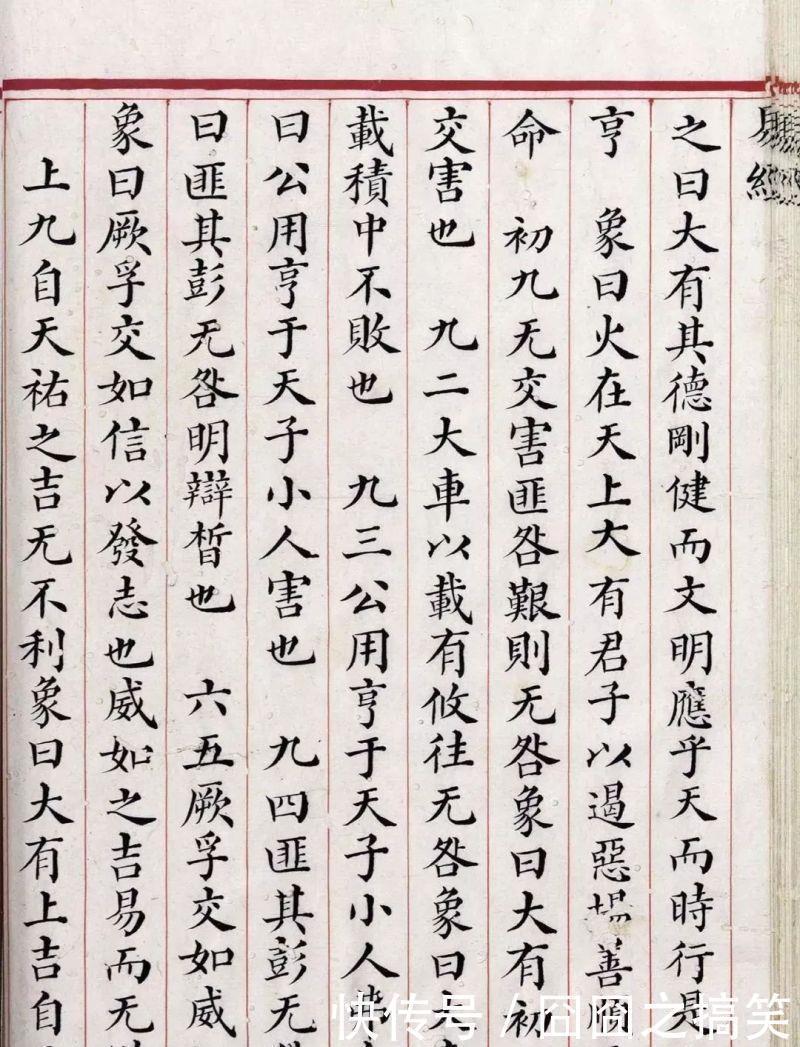 之曰大有其德剛健而文明應乎天而時行是
亨　象曰火在天上大有君子以遏惡揚善順
命　初九无交害匪咎艱則无咎象曰大有初
交害也　九二大車以載有攸往无咎象曰大
載積中不敗也　九三公用亨于天子小人弗
曰公用亨于天子小人害也　九四匪其彭无
曰匪其彭无咎明辯晳也　六五厥孚交如威
象曰厥孚交如信以發志也威如之吉易而无
上九自天祐之吉无不利象曰大有上吉自
快传号 / 囧囧之搞笑